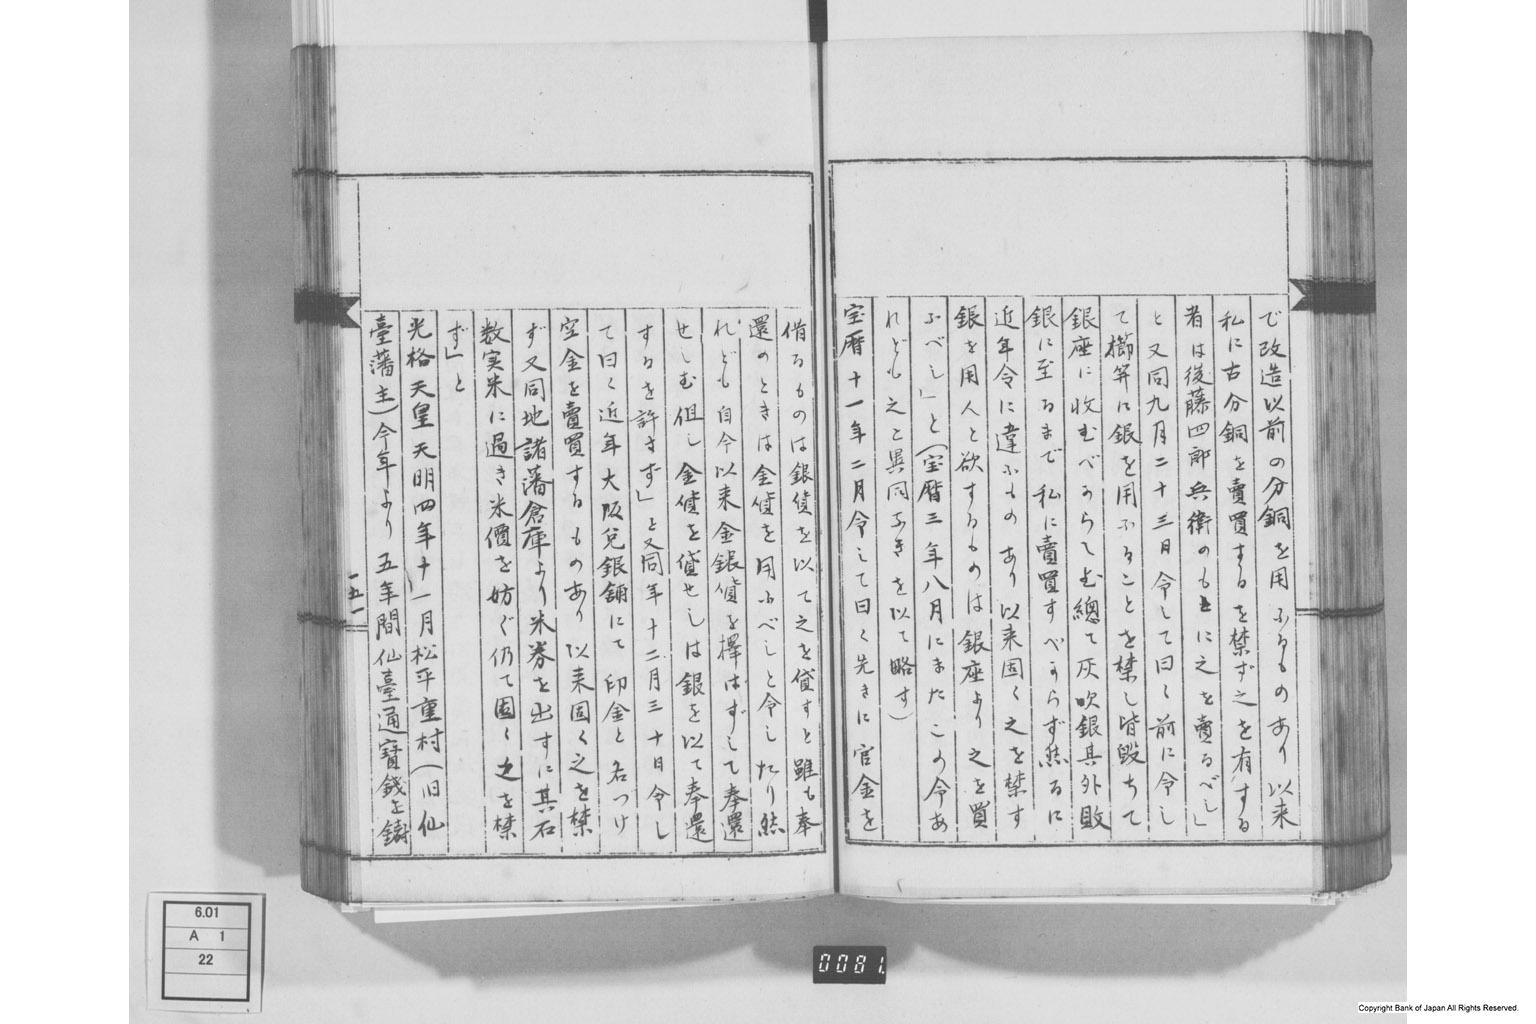 で改造以前の分銅を用ふるものあり以来
私に古分銅を賣買するを禁ず之を有する
者は後藤四郎兵衛のもとに之を賣るべし」
と又同九月二十三日令して曰く前に令し
て櫛笄に銀を用ふることを禁し皆毀ちて
銀座に收むべからしむ總て灰吹銀其外敗
銀に至るまで私に賣買すべからず然るに
近年令に違ふものあり以来固く之を禁す
銀を用人と欲するものは銀座より之を買
ふべし」と(宝暦三年八月にまたこの令あ
れども之と異同なきを以て略す)
宝暦十一年二月令して曰く先きに官金を
借るものは銀貨を以て之を貸すと雖も奉
還のときは金貨を用ふべしと令したり然
れども自今以来金銀貨を擇はずして奉還
せしむ但し金貨を貸せしは銀を以て奉還
するを許さず」と又同年十二月三十日令し
て曰く近年大阪兌銀舗にて印金と名づけ
空金を賣買するものあり以来固く之を禁
ず又同地諸藩倉庫より米券を出すに其石
数実米に過き米價を妨ぐ仍て固く之を禁
ず」と
光格天皇天明四年十一月松平重村(旧仙
臺藩主)今年より五年間仙臺通寳錢を鑄
一五一
6.01
A 1
22
0081.
Copyright Bank of Japan All Rights Reserved.